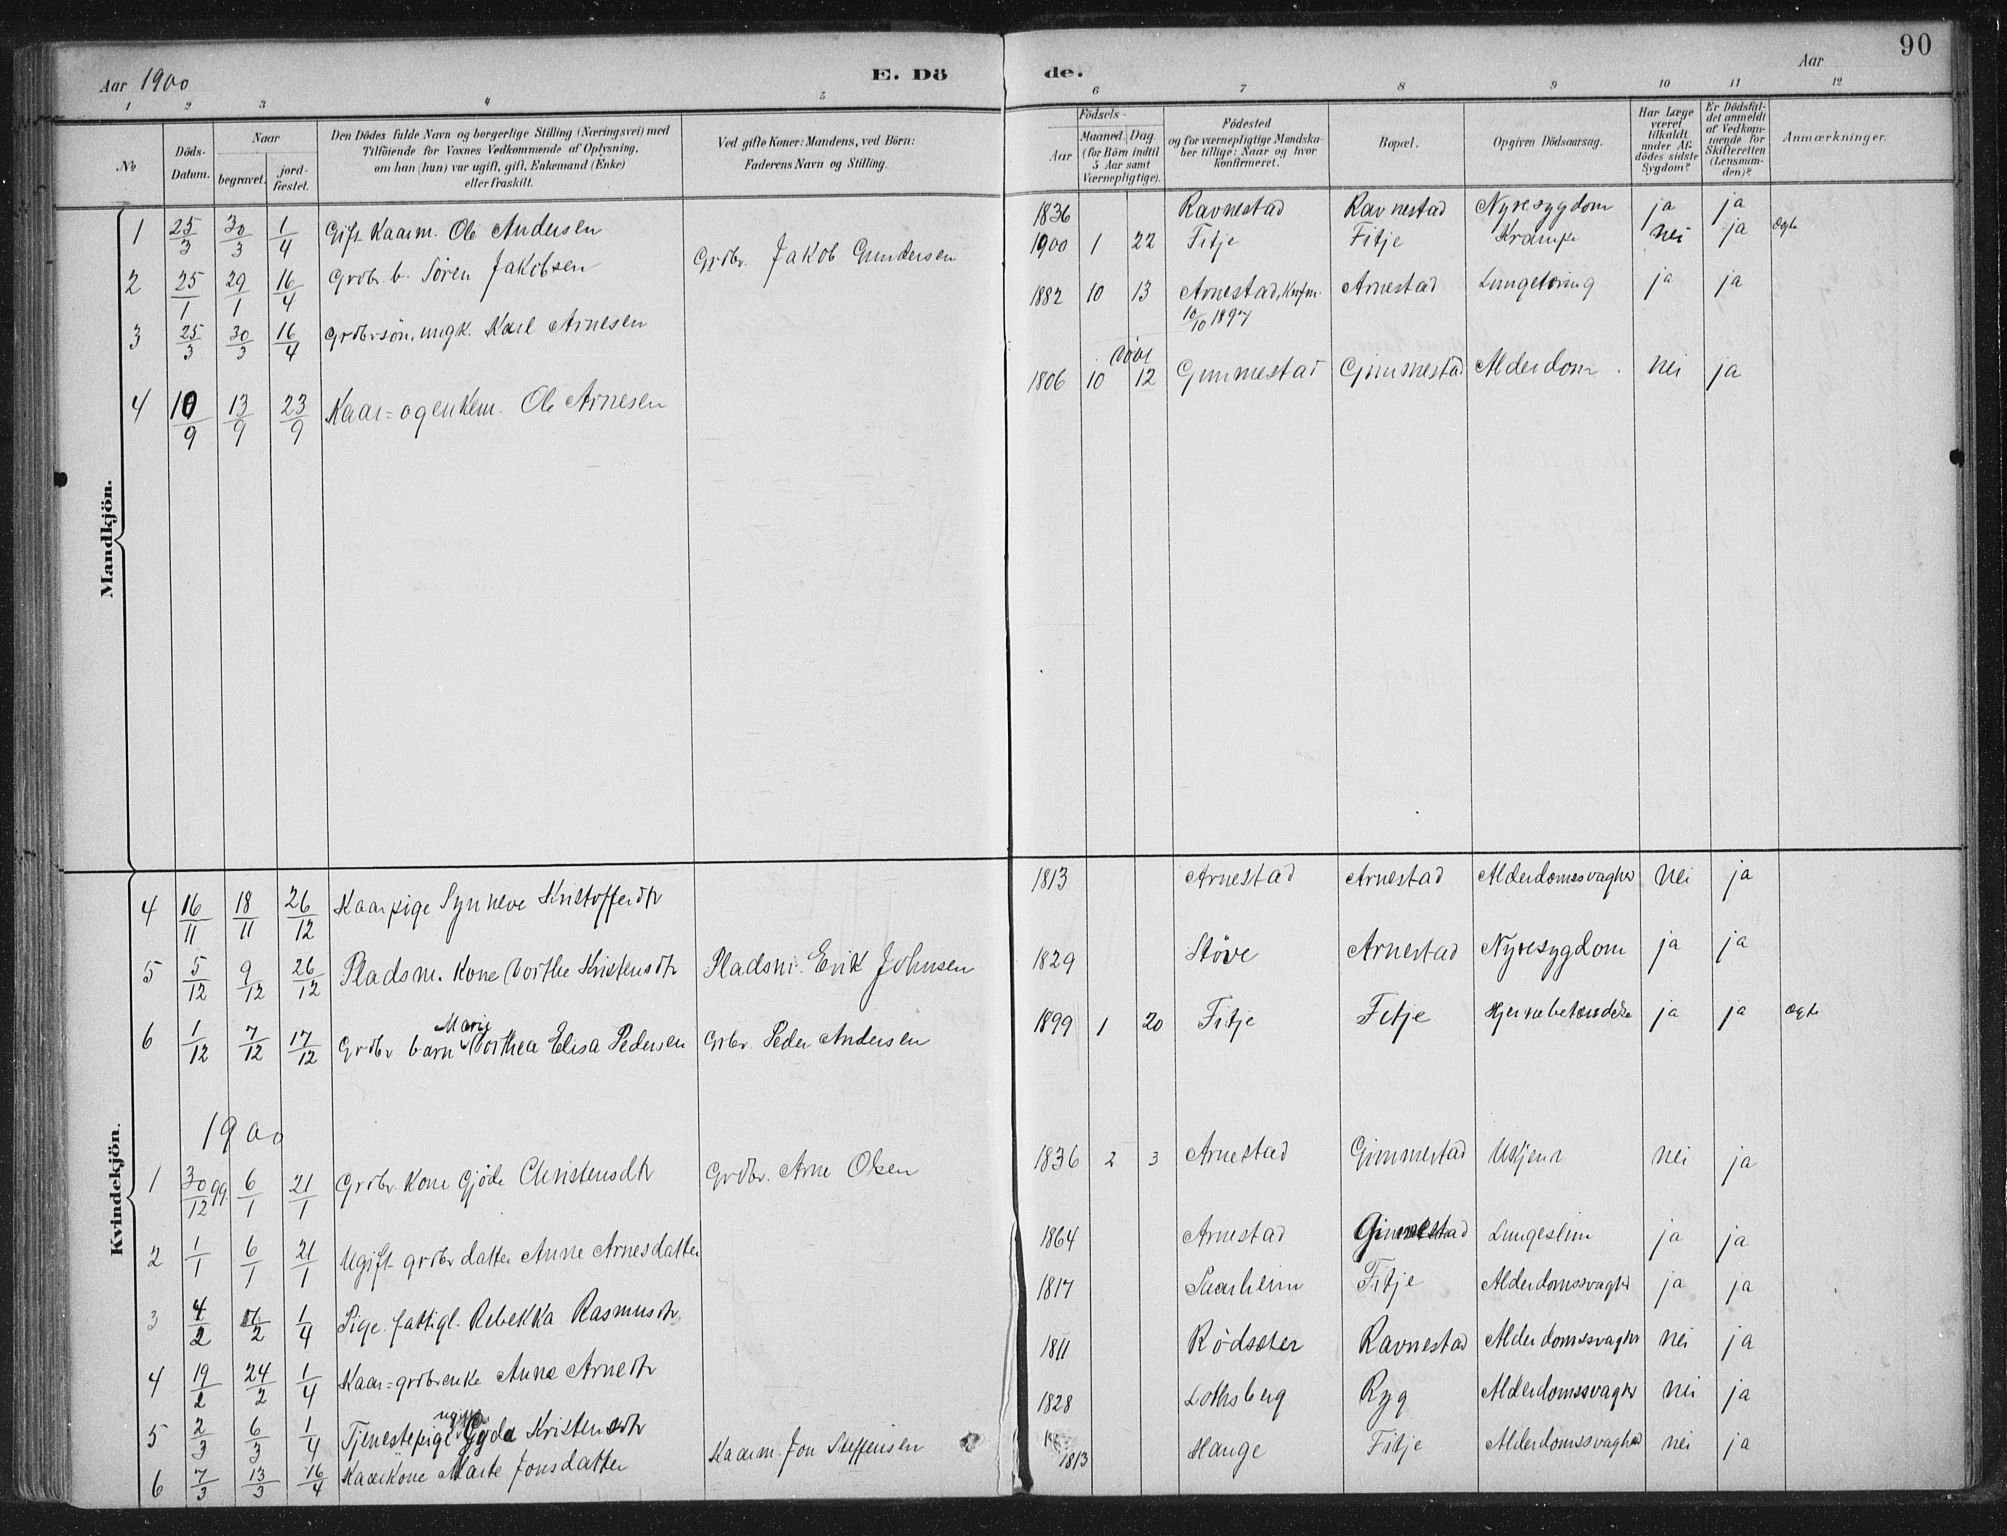 90
Aar 1900 E. Dö de. Aar
1 2 3 4 5 6 7 8 9 10 11 12
No
Döds-Datum.
Naar
begravet.
jord-fæstet.
Den Dödes fulde Navn og borgerlige Stilling (Næringsvei) med
Tilföiende for Voxnes Vedkommende af Oplysning,
om han (hun) var ugift, gift, Enkemand (Enke)
eller fraskilt.
Ved gifte Koner: Mandens, ved Börn:
Faderens Navn og Stilling.
Födsels-
Aar
Maaned. Dag.
(for Börn indtil
5 Aar samt
Værnepligtige).
Födested
og for værnepligtige Mandska-
ber tillige: Naar og hvor
konfirmeret.
Bopæl.
Opgiven Dödsaarsag.
Har Læge
været
tilkaldt
under Af-
dödes sidste
Sygdom?
Er Dödsfal-
det anmeldt
af Vedkom-
mende for
Skifteretten
(Lensman-
den)?
Anmærkninger.
Mandkjön.
1 25/3 30/3 1/4 Gift Kaarm. Ole Andersen 1836 Ravnestad Ravnestad Nyresygdom ja ja
2 25/1 29/1 16/4 Grdbr. b. Sören Jakobsen Grdbr. Jakob Gundersen 1900 1 22 Fitje Fitje Krampe nei ja Ægte
3 25/3 30/3 16/4 Grdbrsön, ungk. Karl Arnesen 1882 10 13 Arnestad, Konfm. Arnestad Lungetæring ja ja
10/10 1897
4 10/9 13/9 23/9 Kaar= og enkem. Ole Arnesen 1806 10 12 Gimmestad Gimmestad Alderdom. nei ja
Kvindekjön.
4 16/11 18/11 26/12 Kaarpige Synneve Kristofferdtr 1813 Arnestad Arnestad Alderdomssvaghed nei ja
5 5/12 9/12 26/12 Pladsm. Kone Dorthe Kristensdtr Pladsm. Erik Johnsen 1829 Störe Arnestad Nyresygdom ja ja
Marie
6 1/12 7/12 17/12 Grdbr barn Dorthea Elisa Pedersen Grbr. Peder Andersen 1899 1 20 Fitje Fitje Hjernebetændelse ja ja Ægte
1900
1 30/12 99. 6/1 21/1 Grdbr. Kone Gjöde Christensdtr Grdbr. Arne Olsen 1836 2 3 Arnestad Gimmestad Ukjend nei ja
2 1/1 6/1 21/1 Ugift grdbr datter Anne Arnesdatter 1864 Arnestad Gimmestad Lungeslim ja ja
3 4/2 /2 1/4 Pige fattigl. Rebekka Rasmusdtr 1817 Fitje Alderdomssvaghed ja ja
4 19/2 24/2 1/4 Kaar=grdbrenke Anna Arnedtr 1811 Rödseter Ravnestad Alderdomssvaghed nei ja
ugift
5 2/3 6/3 1/4 Tjenestepige Gyda Kristensdtr 1828 Lothsberg Ryg Alderdomssvaghed nei ja
6 7/3 13/3 16/4 Kaarkone Marte Jonsdatter Kaarm. Jon Steffensen 1813 Hauge Fitje Alderdomssvaghed nei ja